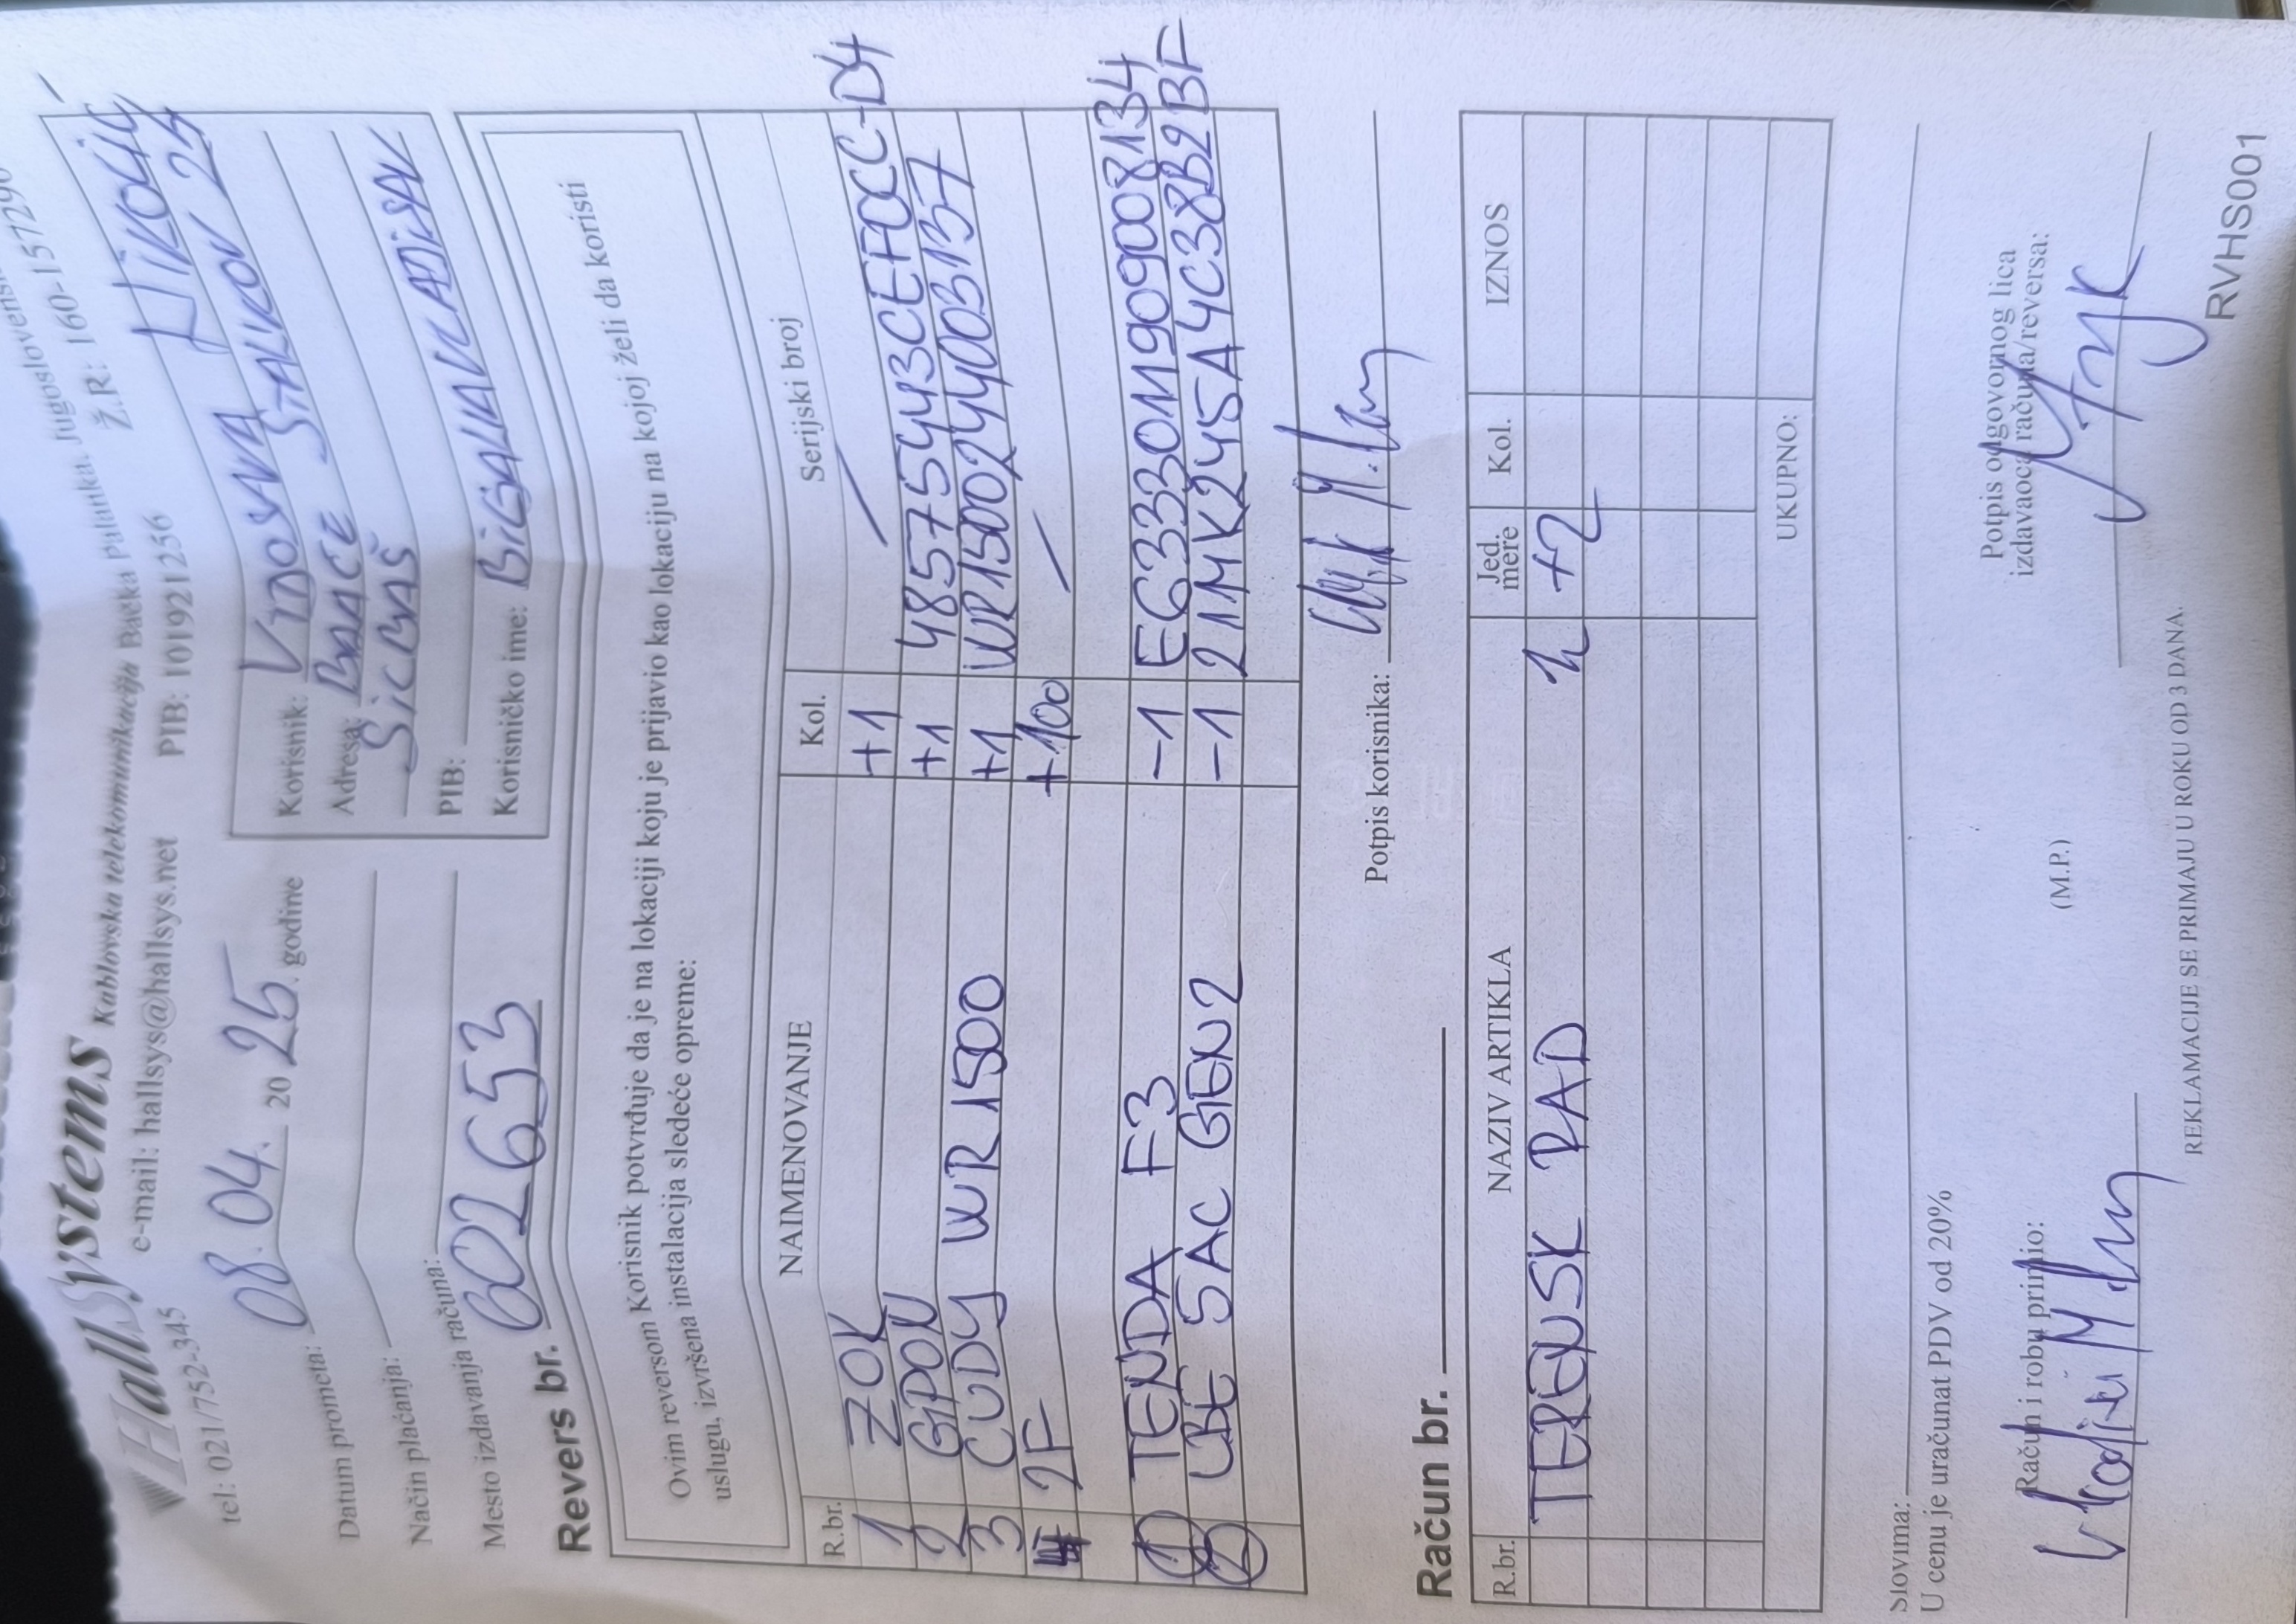 HallSystems Kablovska telekomunikacija Bačka Palanka, Jugoslovenske
tel: 021/752-345 e-mail: hallsys@hallsys.net PIB: 101921256 Ž.R: 160-157290
Datum prometa: 08.04. 2025. godine
Način plaćanja:
Mesto izdavanja računa:
Korisnik: VIDOSAVA NIKOLIĆ
Adresa: BRAĆE STALIKOV 24
PIB:
Korisničko ime:
Revers br. 602653
Ovim reversom Korisnik potvrđuje da je na lokaciji koju je prijavio kao lokaciju na kojoj želi da koristi
uslugu, izvršena instalacija sledeće opreme:
R.br. NAIMENOVANJE Kol. Serijski broj
1 ZOK +1
2 GPON +1 48575443CEF0CC-D4
3 CUDY WR1500 +1 WR1500244003137
2F +100
1 TENDA F3 -1 E63330M9090008134
2 LBE 5AC GEN2 -1 21MK245A4C38B2BF
Potpis korisnika:
Račun br.
R.br. NAZIV ARTIKLA Jed. mere Kol. IZNOS
TERENSK RAD h +2
UKUPNO:
Slovima:
U cenu je uračunat PDV od 20%
Račun i robu primio:
(M.P.)
Potpis odgovornog lica
izdavaoca računa/reversa:
REKLAMACIJE SE PRIMAJU U ROKU OD 3 DANA.
RVHS001